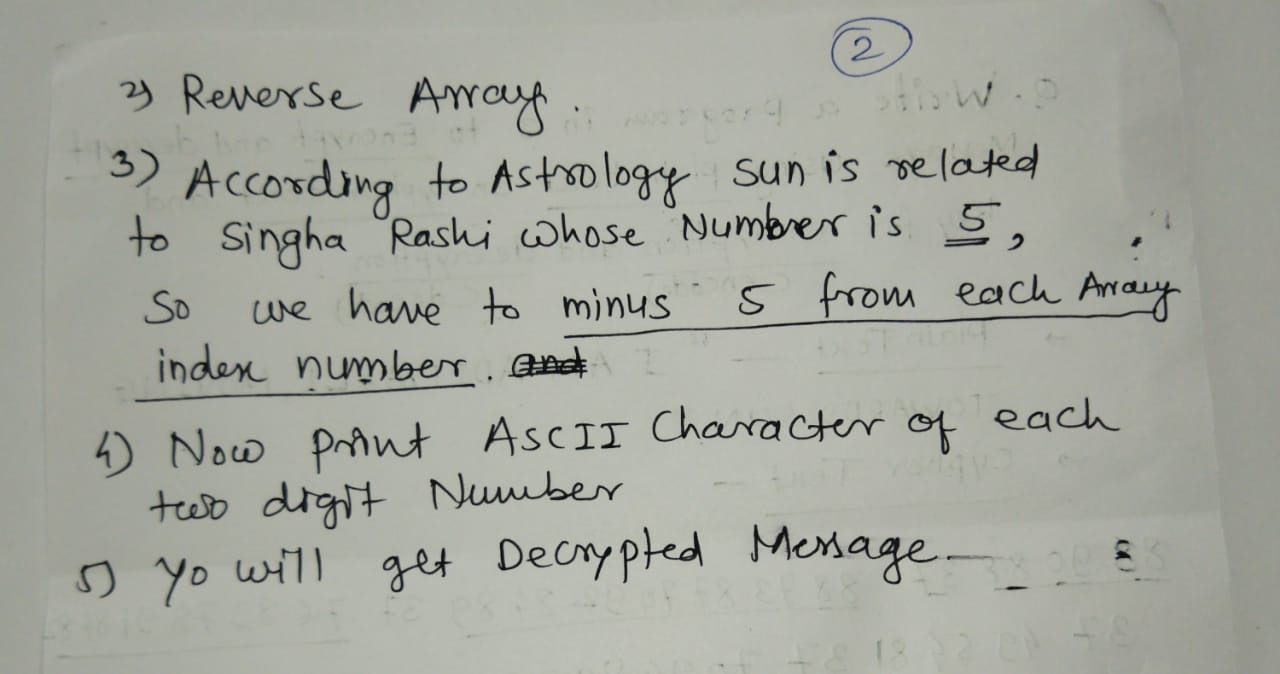 2
2) Reverse Array.
3) According to Astrology sun is related
to Singha Rashi whose Number is 5,
So we have to minus 5 from each Array
index number. and
4) Now print ASCII Character of each
two digit Number
5) Yo will get Decrypted Message